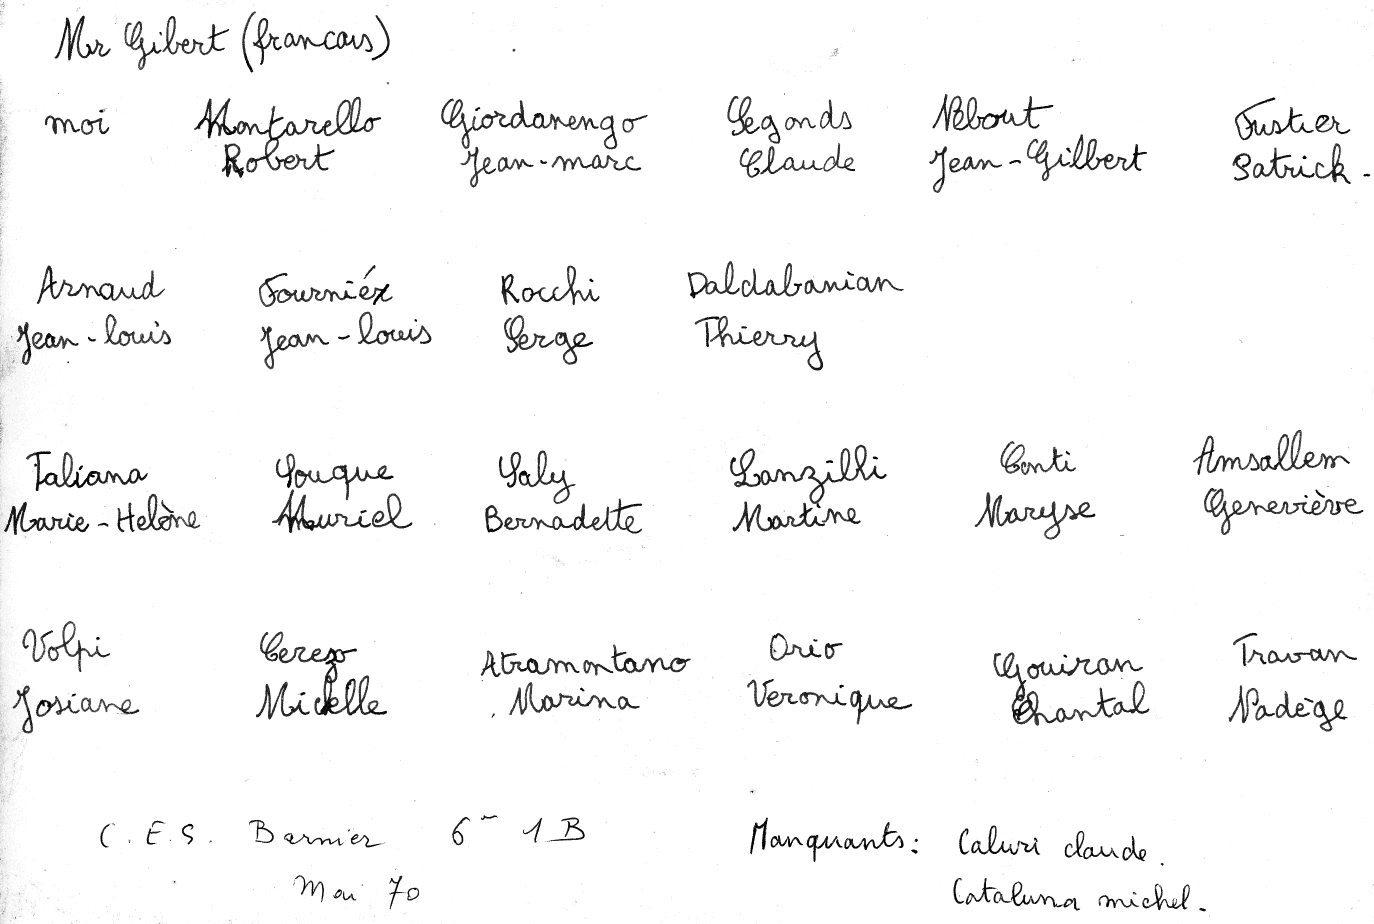 Mr Gibert (francais)
moi Montarello Giordanengo Segonds Nebout Fustier
Robert Jean-marc Claude Jean-Gilbert Patrick.
Arnaud Fourniér Rocchi Daldabanian
Jean-louis Jean-louis Serge Thierry
Taliana Souque Saly Lanzilli Conti Amsallem
Marie-Helène Muriel Bernadette Martine Maryse Geneviève
Volpi Cerezo Atramontano Orio Gouiran Travan
Josiane Michelle Marina Veronique Chantal Nadège
C.E.S. Barnier 6e 1B Manquants: Caluri claude.
Mai 70 Cataluna michel.